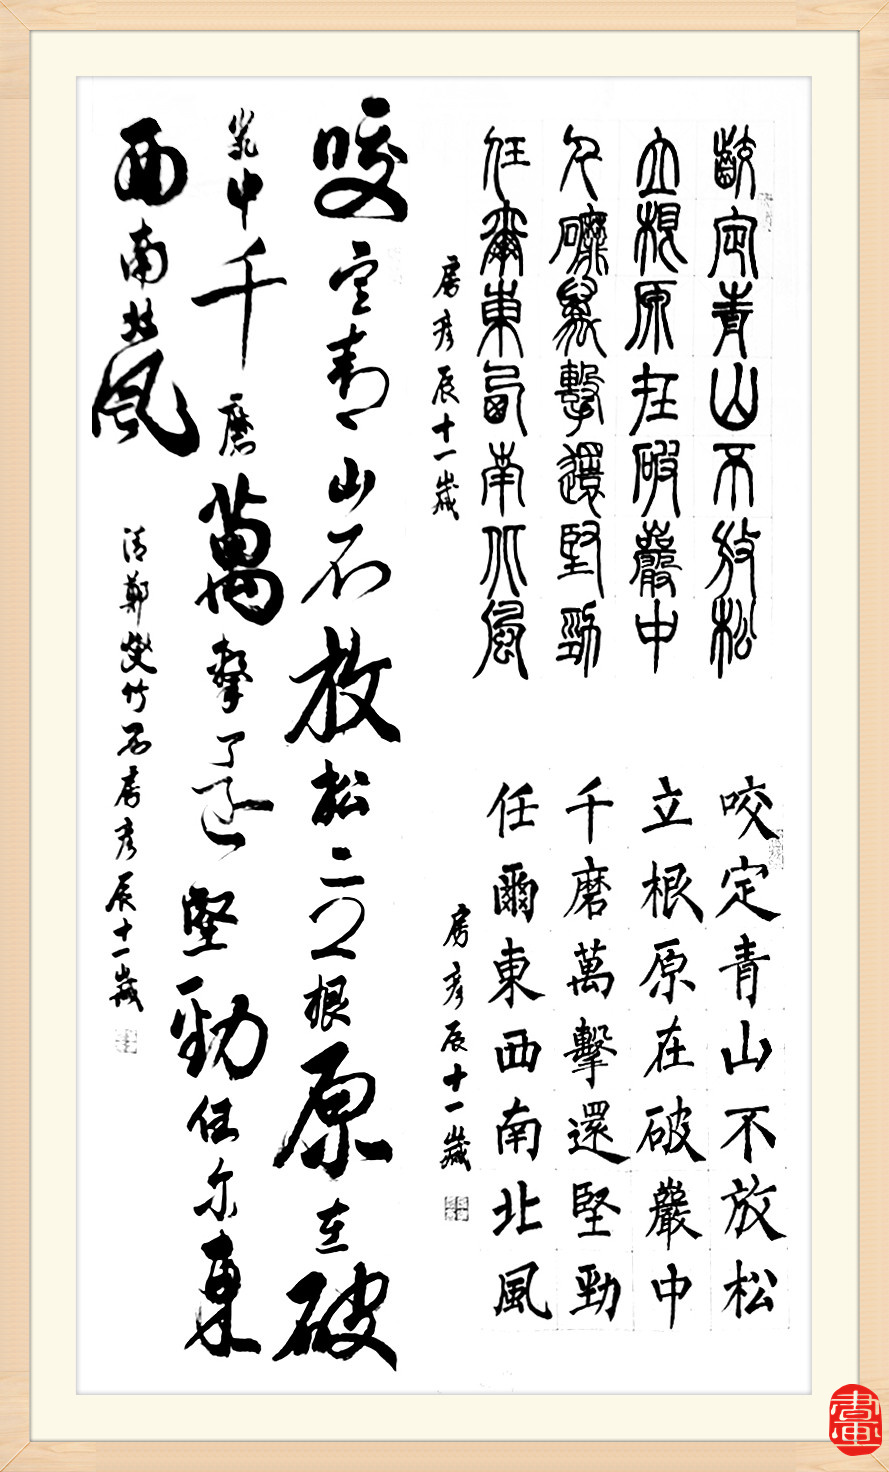 齩定青山不放松
立根原在破巖中
千磨萬擊還堅勁
任爾東西南北風
房彦辰十一歲
咬定青山不放松
立根原在破巖中
千磨萬擊還堅勁
任爾東西南北風
房彦辰十一歲
咬定青山不放松立根原在破
巖中千磨萬擊還堅勁任尔東
西南北風 清鄭燮竹石房彦辰十一歲
畫